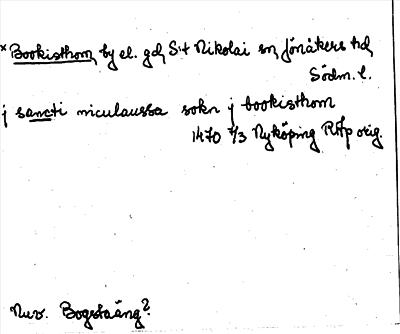 *Bookisthom, by el. gd, S:t Nikolai sn, Jönåkers hd,
Södm. l.
j sancti niculaussa sokn j bookisthom
1470 7/3 Nyköping RAp orig.
Nuv. Bogstaäng?